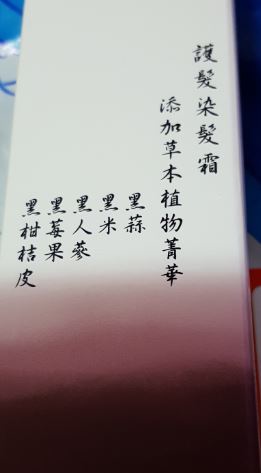 護髮染髮霜
添加草本植物菁華
黑蒜
黑米
黑人蔘
黑莓果
黑柑桔皮